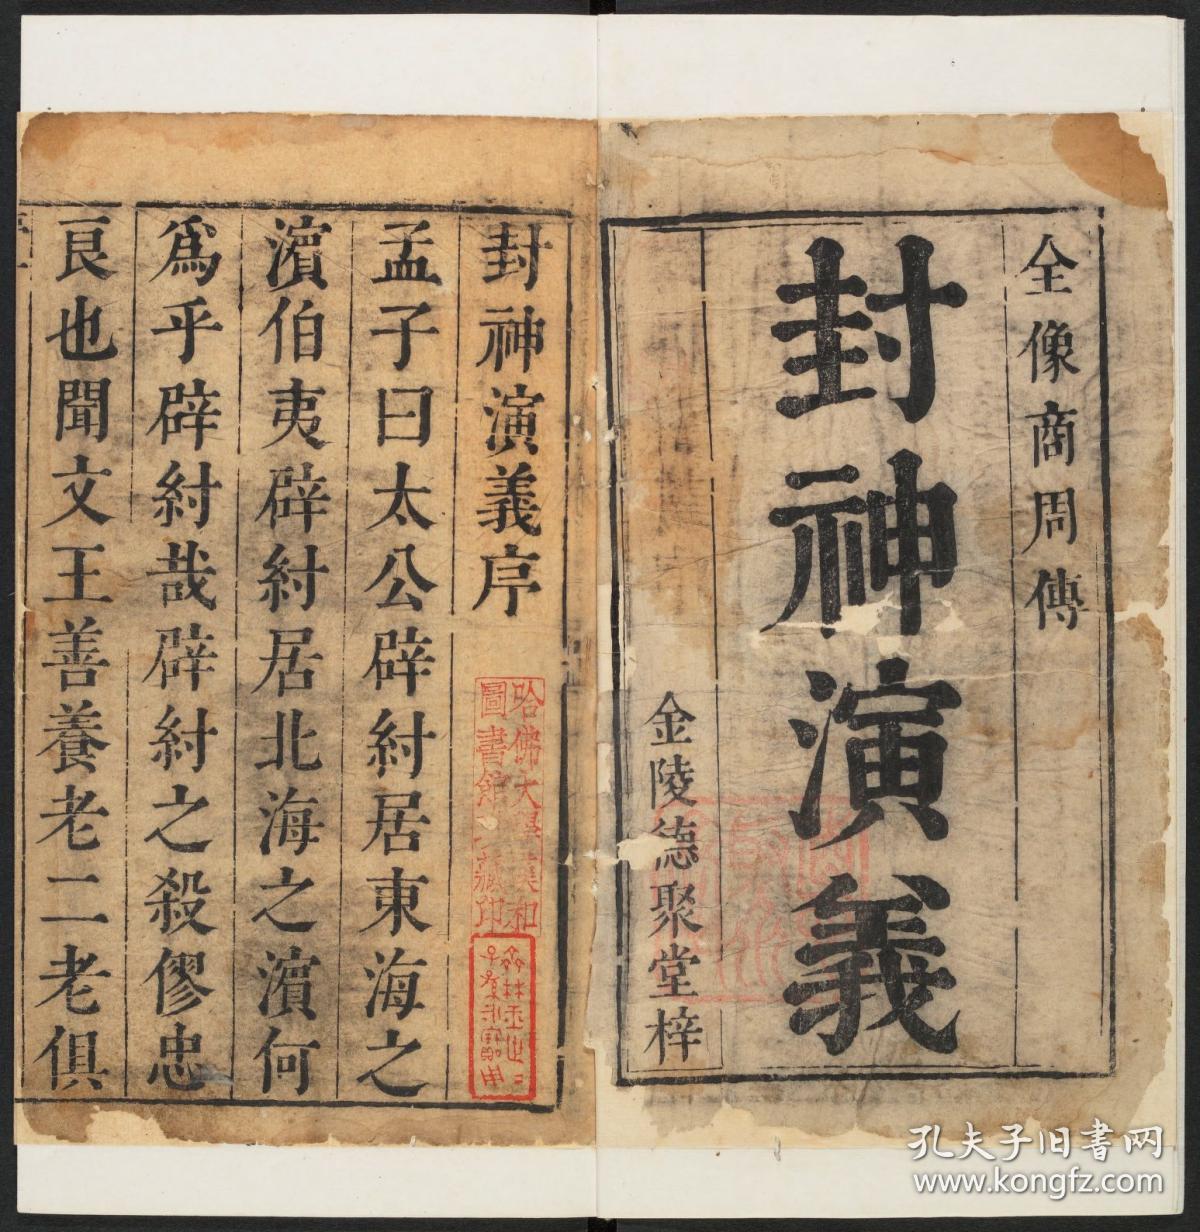 全像商周傳
封神演義
金陵德聚堂梓
封神演義序
孟子曰太公辟紂居東海之
濵伯夷辟紂居北海之濵何
爲乎辟紂哉辟紂之殺僇忠
良也聞文王善養老二老俱
哈佛大學漢和
圖書館藏印
孔夫子旧书网
www.kongfz.com